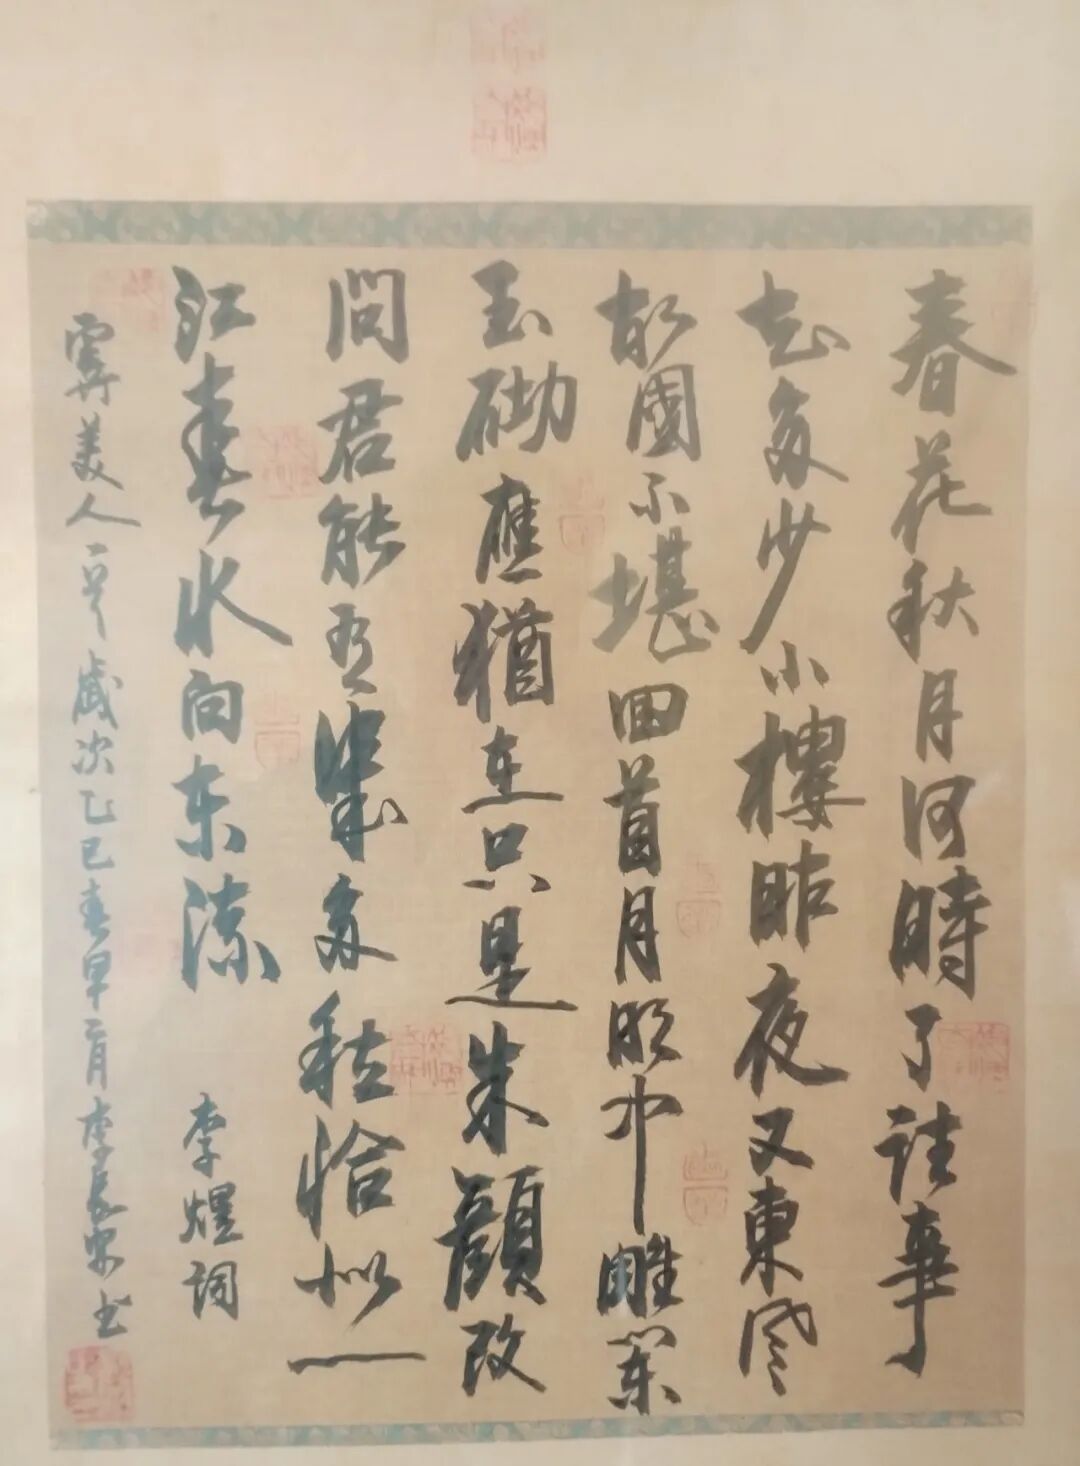 春花秋月何時了往事
知多少小樓昨夜又東風
故國不堪回首月明中雕闌
玉砌應猶在只是朱顔改
問君能有幾多愁恰似一
江春水向东流 李煜詞
虞美人一首 歲次乙巳春早二月李長书